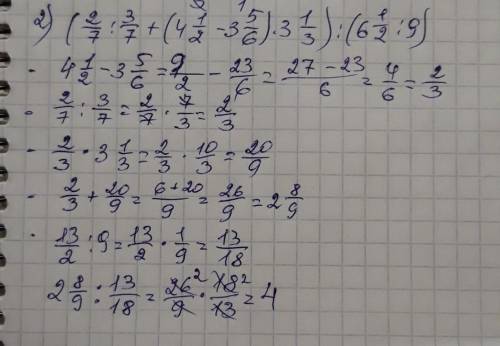 2) (2/7 : 3/7 + (4 1/2 - 3 5/6) · 3 1/3) : (6 1/2 : 9)
- 4 1/2 - 3 5/6 = 9/2 - 23/6 = (27 - 23)/6 = 4/6 = 2/3
- 2/7 : 3/7 = 2/7 · 7/3 = 2/3
- 2/3 · 3 1/3 = 2/3 · 10/3 = 20/9
- 2/3 + 20/9 = (6 + 20)/9 = 26/9 = 2 8/9
· 13/2 : 9 = 13/2 · 1/9 = 13/18
2 8/9 : 13/18 = 26²/9 · 18²/13 = 4